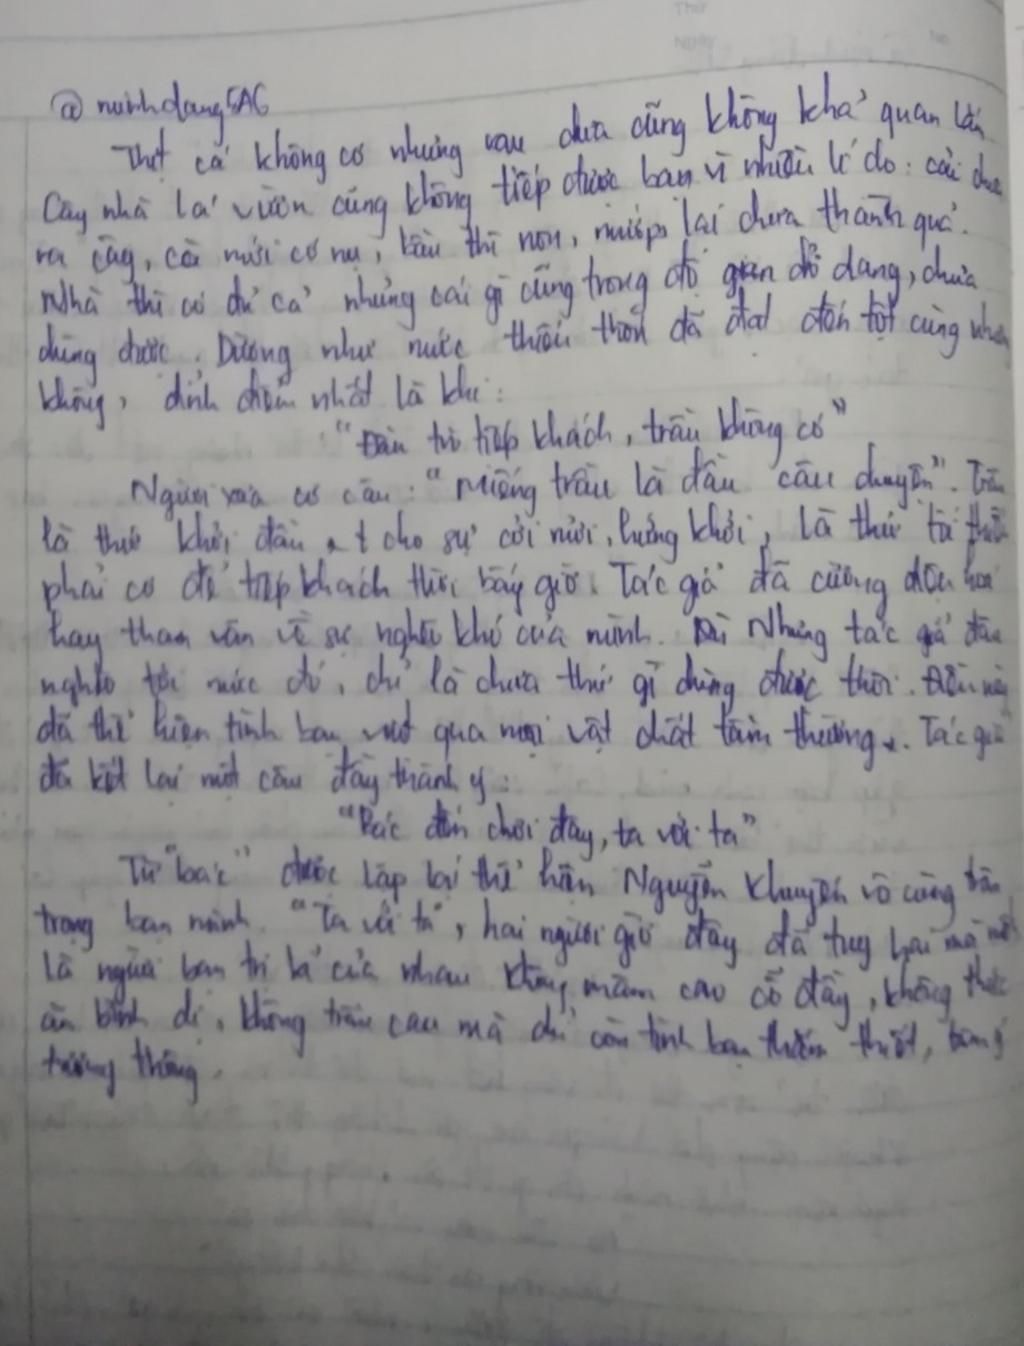 @minhdang5A6
Thịt cá không có nhưng rau dưa cũng không khả quan lắm
Cây nhà lá vườn cũng không tiếp được bạn vì nhiều lí do: cải chưa
ra cây, cà mới có nụ, bầu thì non, mướp lại chưa thành quả.
Nhà thì có đủ cả nhưng cái gì cũng trong độ gian dở dang, chưa
dùng được. Dường như mức thiếu thốn đã đạt đến tột cùng
không, đỉnh điểm nhất là khi:
"Đầu trò tiếp khách, trầu không có"
Người xưa có câu: "Miếng trầu là đầu câu chuyện". Trầu
là thứ khởi đầu cho sự cởi mới, hứng khởi, là thứ
phải có để tiếp khách thời bấy giờ. Tác giả đã cường điệu hoá
hay than vãn về sự nghèo khó của mình. Nhưng tác giả đâu
nghèo tới mức đó, chỉ là chưa thứ gì dùng được thôi. Điều này
đã thể hiện tình bạn vượt qua mọi vật chất tầm thường. Tác giả
đã kết lại một câu đầy thành ý:
"Bác đến chơi đây, ta với ta"
Từ "bác" được lặp lại thể hiện Nguyễn Khuyến vô cùng trân
trọng bạn mình. "Ta với ta", hai người giờ đây đã tuy hai mà một
là người bạn tri kỉ của nhau không mâm cao cỗ đầy, không thức
ăn bình dị, không trầu cau mà chỉ còn tình bạn thắm thiết,
tương thông.